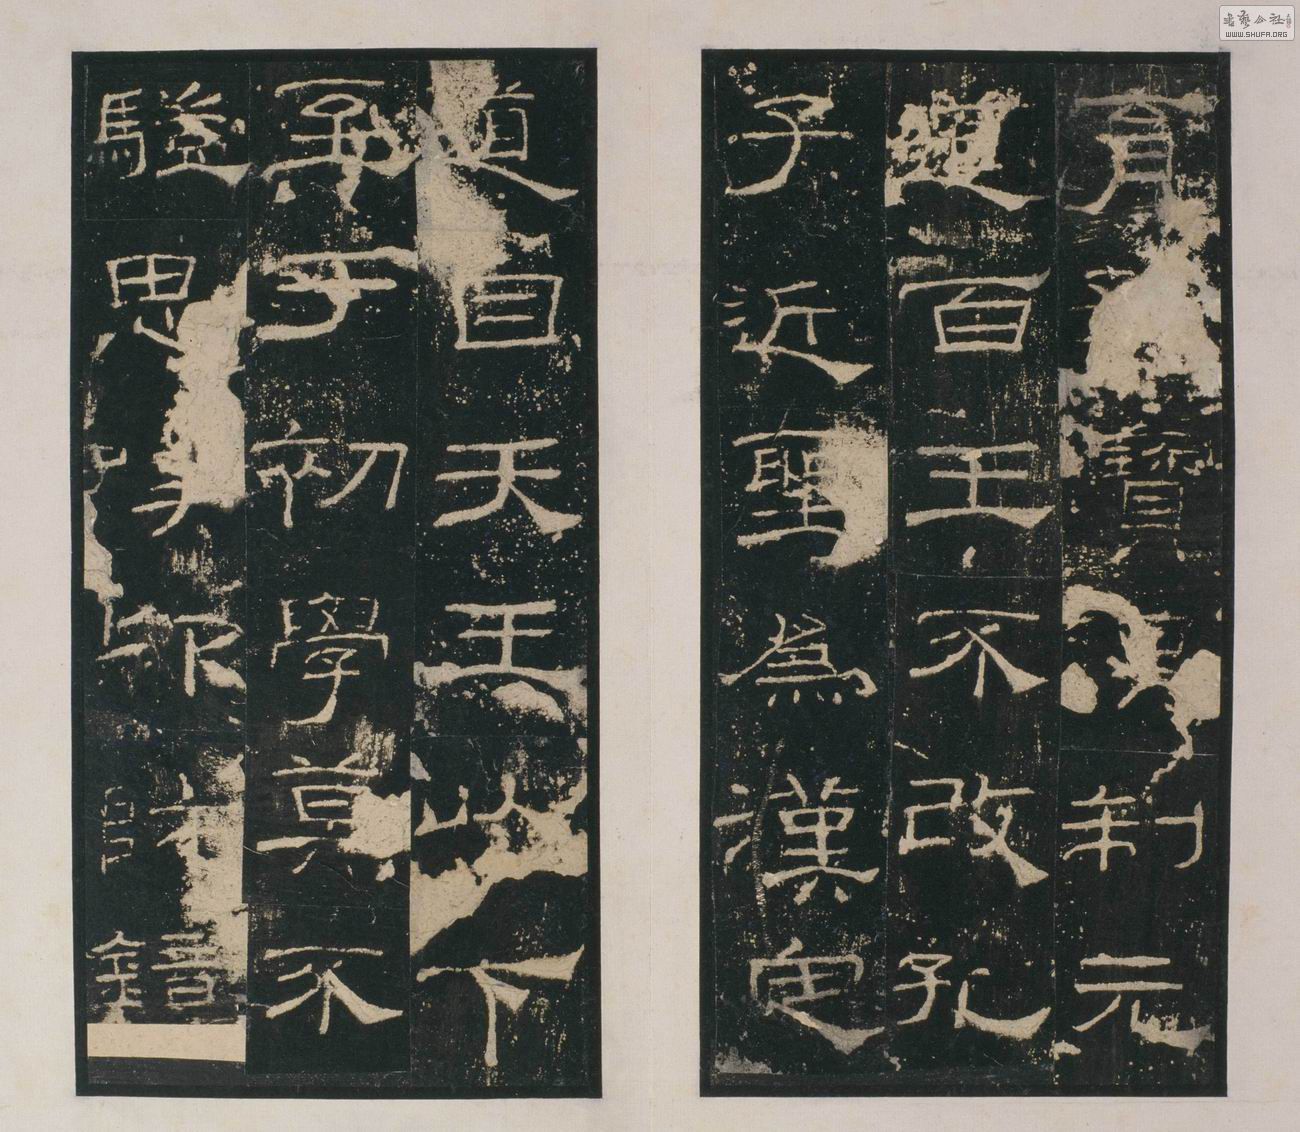 育寶俱制元
道百王不改孔
子近聖為漢定
道自天王以下
至于初學莫不
驥思嘆卬師鏡
書藝公社
WWW.SHUFA.ORG